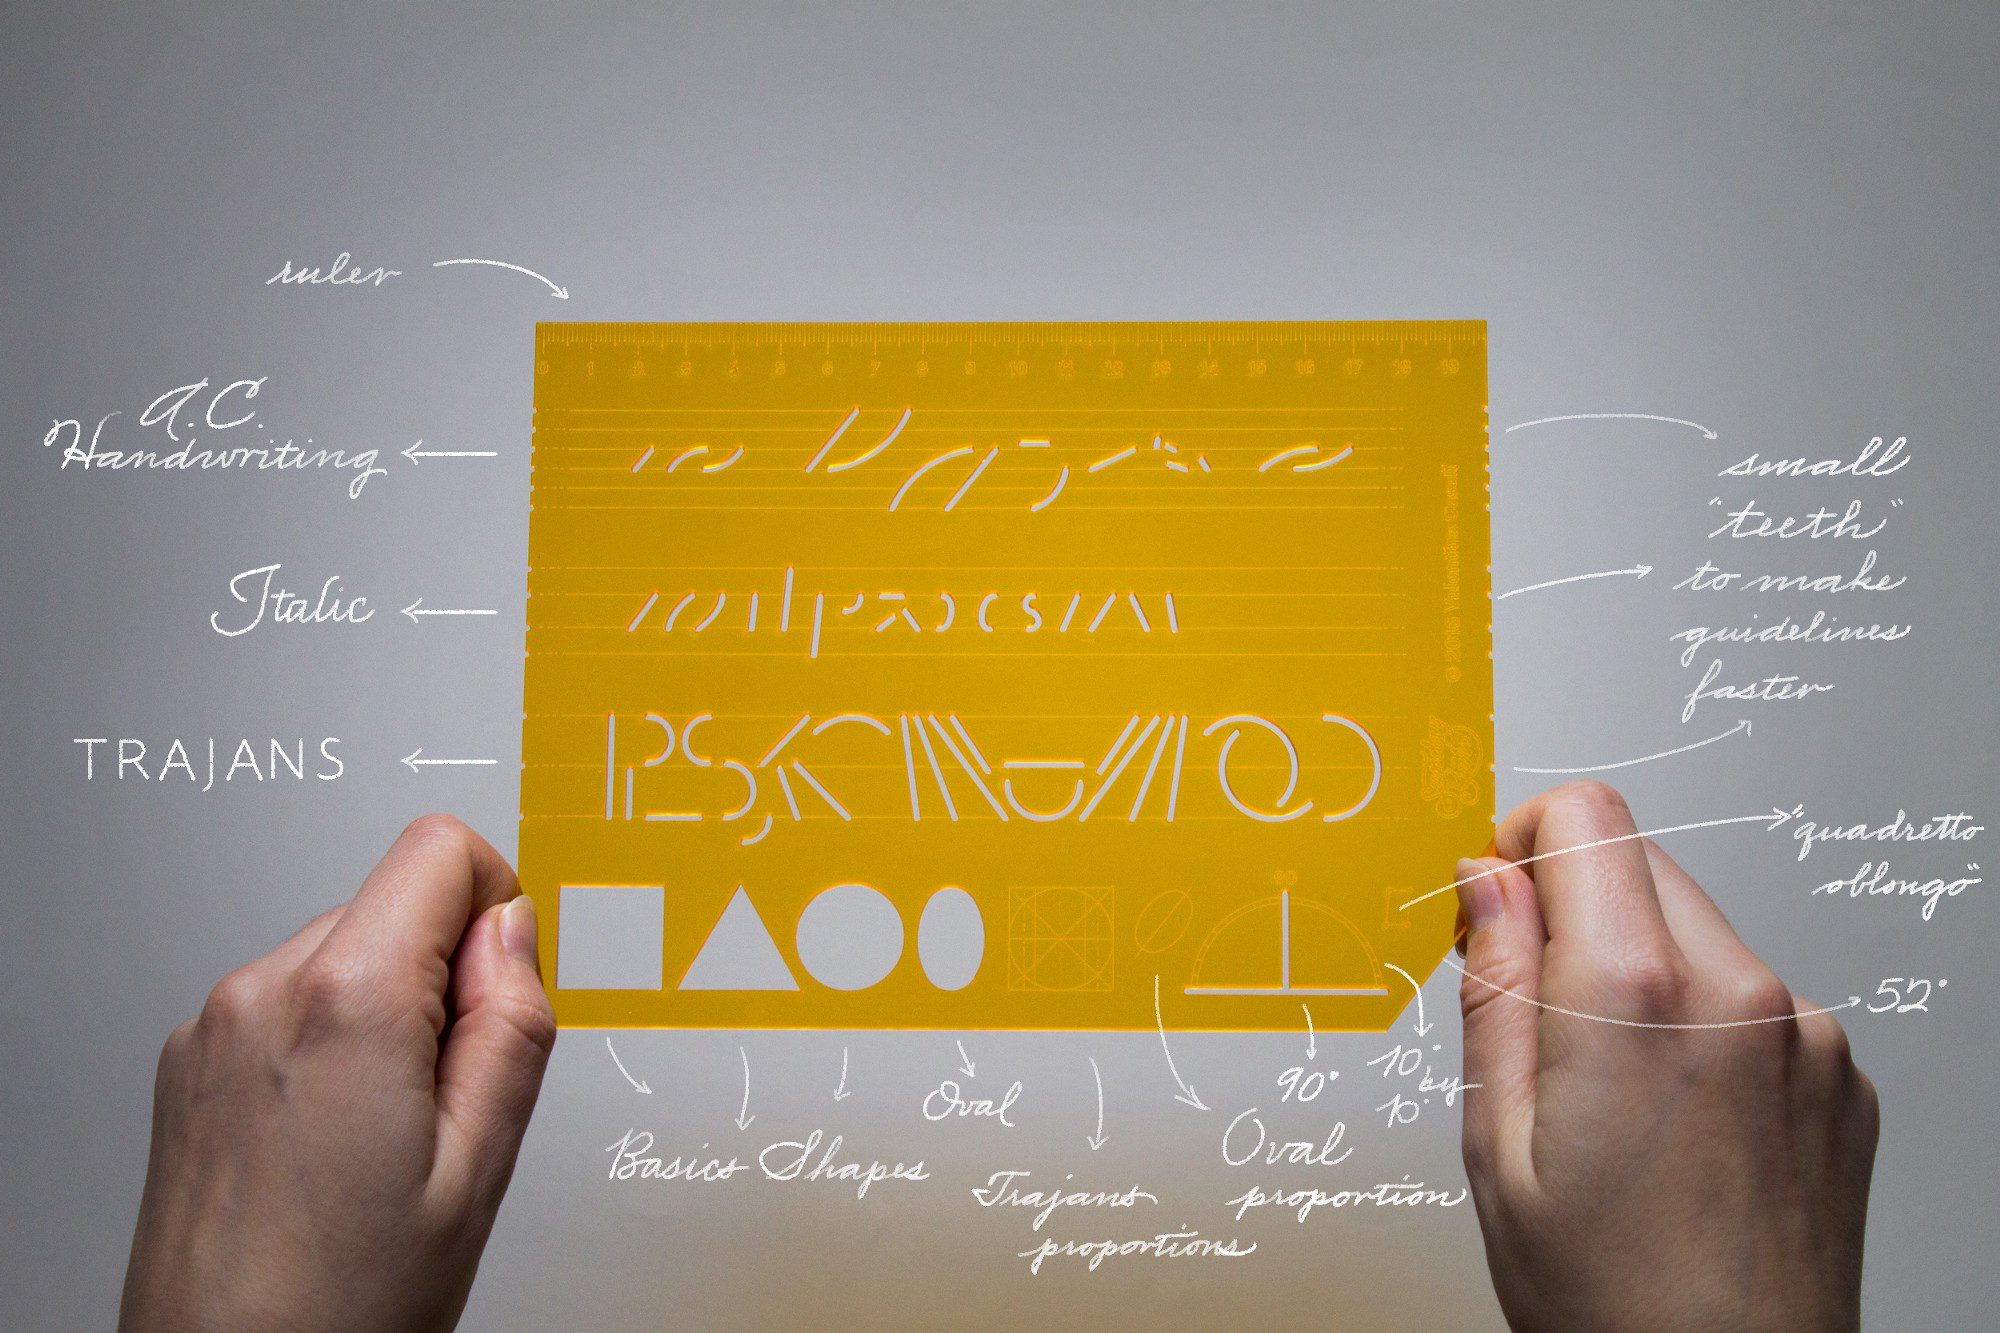 ruler
0 1 2 3 4 5 6 7 8 9 10 11 12 13 14 15 16 17 18 19
A.C.
Handwriting
Italic
TRAJANS
small
"teeth"
to make
guidelines
faster
"quadretto
oblongo"
52°
90
90°
10°
by
10°
Oval
Basics Shapes
Oval
proportion
Trajans
proportions